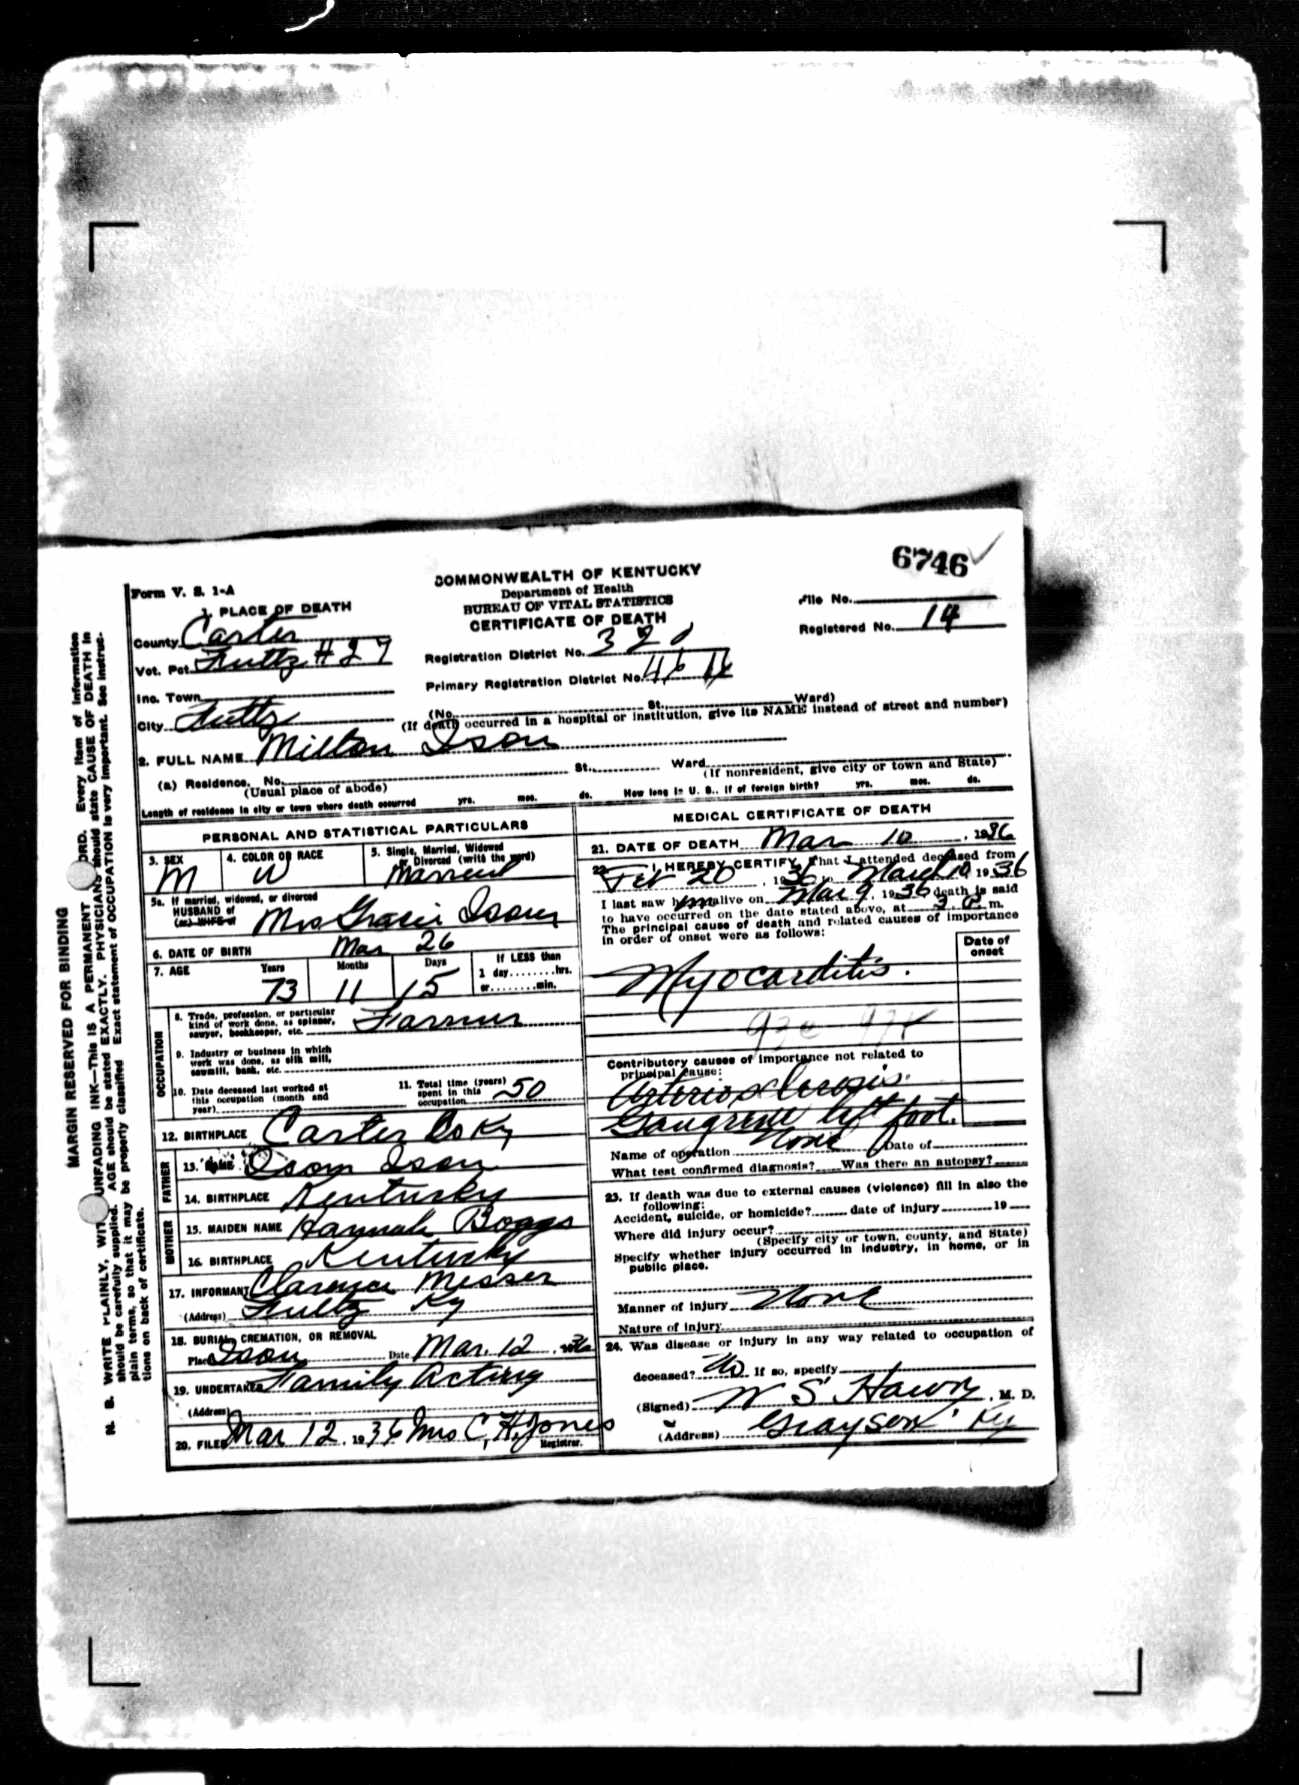 6746
Form V. S. 1-A
COMMONWEALTH OF KENTUCKY
Department of Health
BUREAU OF VITAL STATISTICS
CERTIFICATE OF DEATH
File No.
Registered No. 14
1. PLACE OF DEATH
County Carter
Vot. Pct. Fultz #27
Inc. Town
City Fultz
Registration District No. 320
Primary Registration District No.
(No. St., Ward)
(If death occurred in a hospital or institution, give its NAME instead of street and number)
2. FULL NAME Milton Ison
(a) Residence. No. St., Ward
(Usual place of abode)
(If nonresident, give city or town and State)
Length of residence in city or town where death occurred yrs. mos. ds. How long in U. S., if of foreign birth? yrs. mos. ds.
PERSONAL AND STATISTICAL PARTICULARS
3. SEX M
4. COLOR OR RACE W
5. Single, Married, Widowed or Divorced (write the word) Married
5a. If married, widowed, or divorced
HUSBAND of
(or) WIFE of Mrs Gracie Ison
6. DATE OF BIRTH Mar 26
7. AGE Years 73 Months 11 Days 15
If LESS than
1 day........hrs.
or........min.
OCCUPATION
8. Trade, profession, or particular
kind of work done, as spinner,
sawyer, bookkeeper, etc. Farmer
9. Industry or business in which
work was done, as silk mill,
sawmill, bank, etc.
10. Date deceased last worked at
this occupation (month and
year)
11. Total time (years)
spent in this
occupation 50
12. BIRTHPLACE Carter Co Ky
FATHER
13. NAME Isom Ison
14. BIRTHPLACE Kentucky
MOTHER
15. MAIDEN NAME Hannah Boggs
16. BIRTHPLACE Kentucky
17. INFORMANT Clarence Messer
(Address) Fultz Ky
18. BURIAL, CREMATION, OR REMOVAL
Place Ison Date Mar. 12, 1936
19. UNDERTAKER Family Acting
(Address)
20. FILED Mar 12, 1936 Mrs C. H. Jones
Registrar.
MEDICAL CERTIFICATE OF DEATH
21. DATE OF DEATH Mar 10, 1936
22. I HEREBY CERTIFY, That I attended deceased from
Feb 20, 1936 to March 10 1936
I last saw him alive on Mar 9, 1936 death is said
to have occurred on the date stated above, at 3. P. m.
The principal cause of death and related causes of importance
in order of onset were as follows:
Date of onset
Myocarditis.
Contributory causes of importance not related to
principal cause:
Arteriosclerosis.
Gangrene left foot.
Name of operation None Date of
What test confirmed diagnosis? Was there an autopsy?
23. If death was due to external causes (violence) fill in also the
following:
Accident, suicide, or homicide? date of injury 19
Where did injury occur?
(Specify city or town, county, and State)
Specify whether injury occurred in industry, in home, or in
public place.
Manner of injury None
Nature of injury
24. Was disease or injury in any way related to occupation of
deceased? No If so, specify
(Signed) W S Hawn, M. D.
(Address) Grayson Ky
MARGIN RESERVED FOR BINDING
N. B. WRITE PLAINLY, WITH UNFADING INK—THIS IS A PERMANENT RECORD. Every item of information
should be carefully supplied. AGE should be stated EXACTLY. PHYSICIANS should state CAUSE OF DEATH in
plain terms, so that it may be properly classified. Exact statement of OCCUPATION is very important. See instruc-
tions on back of certificate.